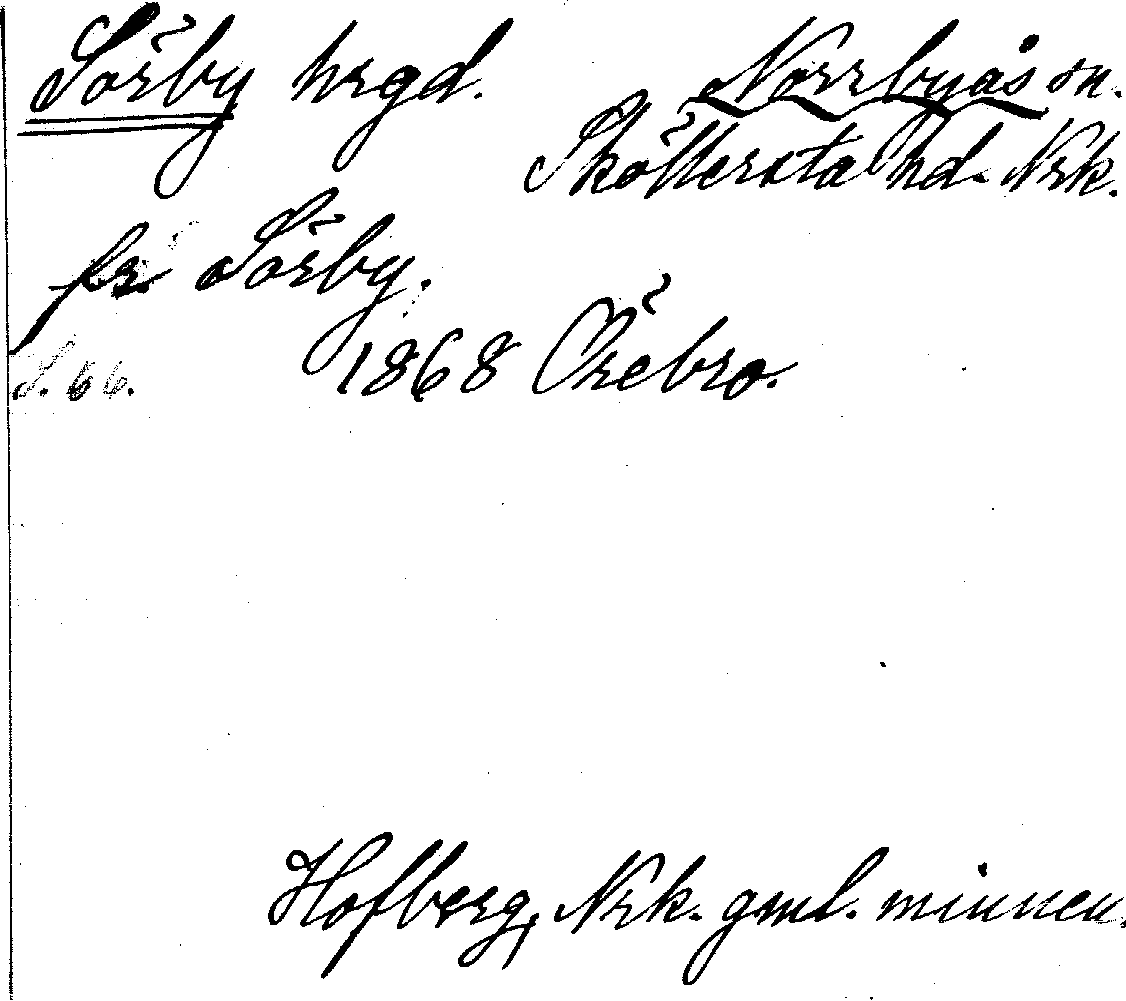 Sörby hrgd. Norrbyås sn.
Sköllersta hd. Nrk.
fr. Sörby.
1868 Örebro.
S. 66.
Hofberg, Nrk. gml. minnen.